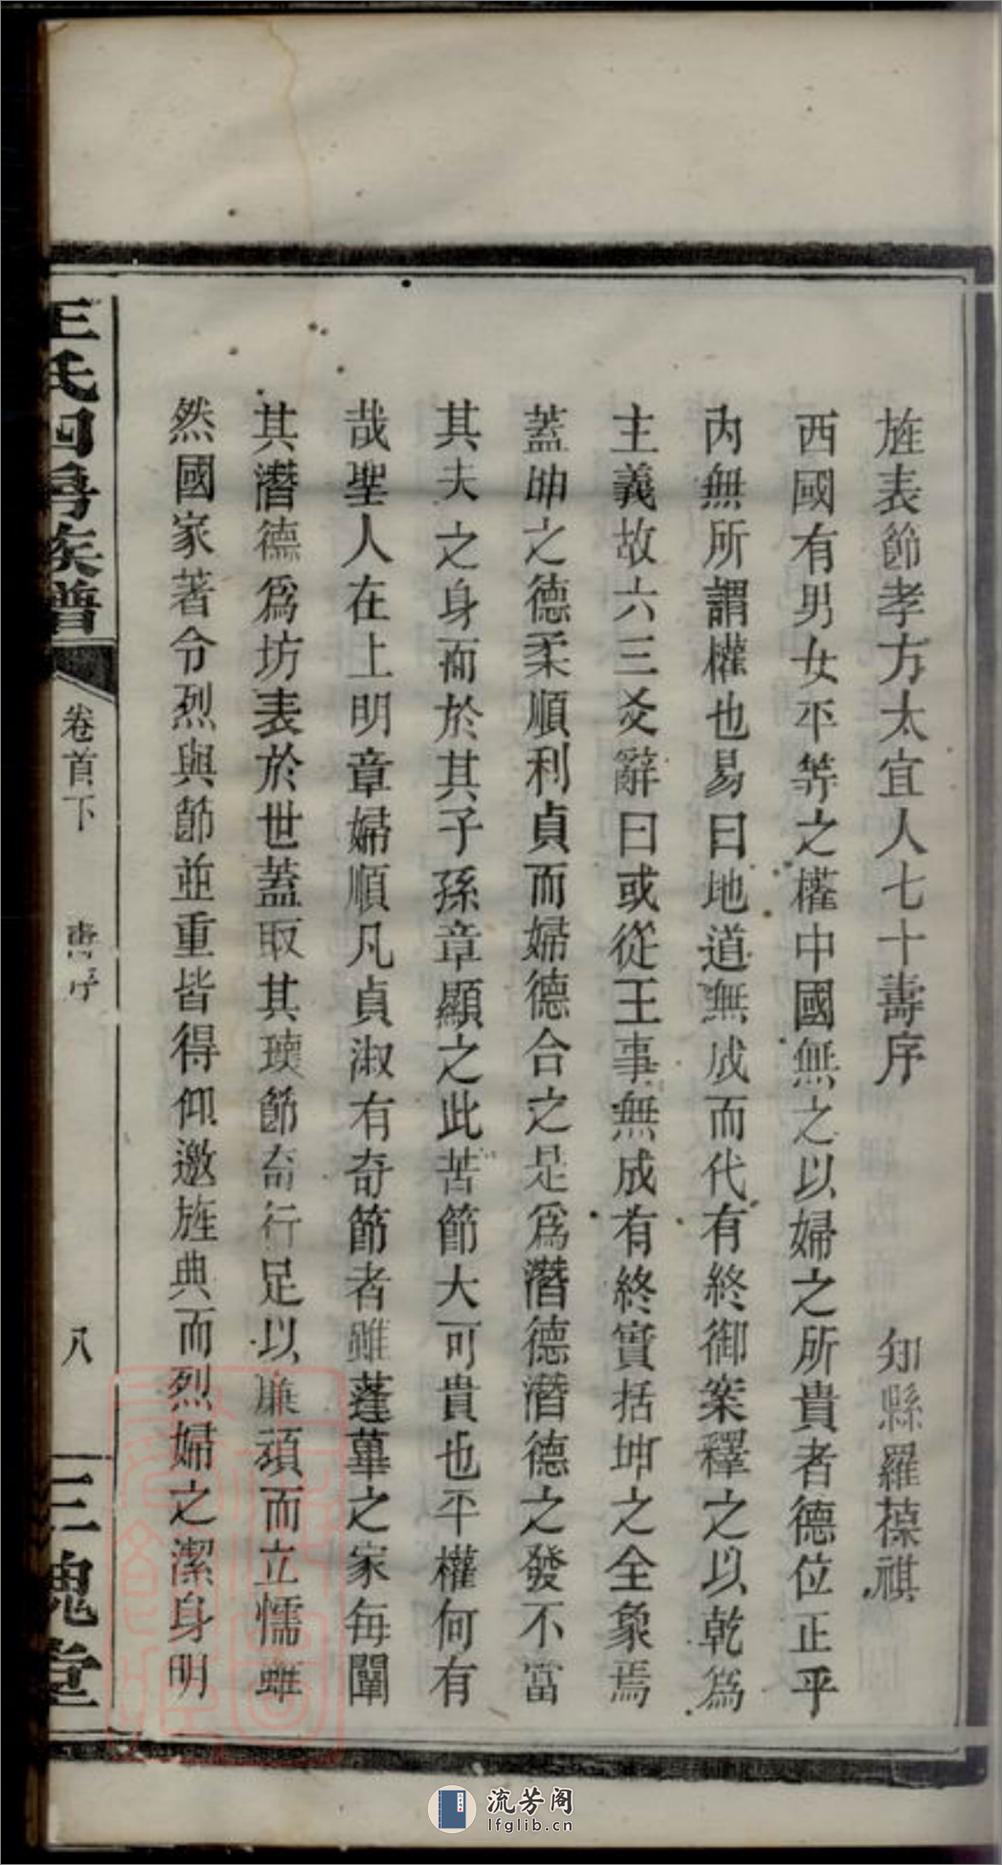 旌表節孝方太宜人七十壽序　知縣羅葆祺
西國有男女平等之權中國無之以婦之所貴者德位正乎
內無所謂權也易曰地道無成而代有終御案釋之以乾為
主義故六三爻辭曰或從王事無成有終實括坤之全象焉
蓋坤之德柔順利貞而婦德合之是爲潛德潛德之發不當
其夫之身而於其子孫章顯之此苦節大可貴也平權何有
哉聖人在上明章婦順凡貞淑有奇節者雖蓬蓽之家每闡
其潛德爲坊表於世蓋取其瓌節奇行足以廉頑而立懦雖
然國家著令烈與節並重皆得仰邀旌典而烈婦之潔身明
王氏四房族譜
卷首下
壽序
八
三槐堂
流芳阁
lfglib.cn